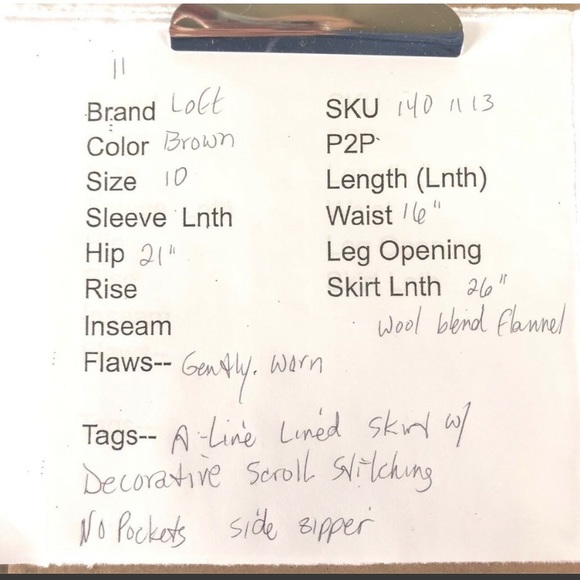 11
Brand Loft SKU 140 11 13
Color Brown P2P
Size 10 Length (Lnth)
Sleeve Lnth Waist 16"
Hip 21" Leg Opening
Rise Skirt Lnth 26"
Inseam Wool blend Flannel
Flaws-- Gently. Worn
Tags-- A-Line Lined Skirt w/
Decorative Scroll Stitching
No Pockets side zipper